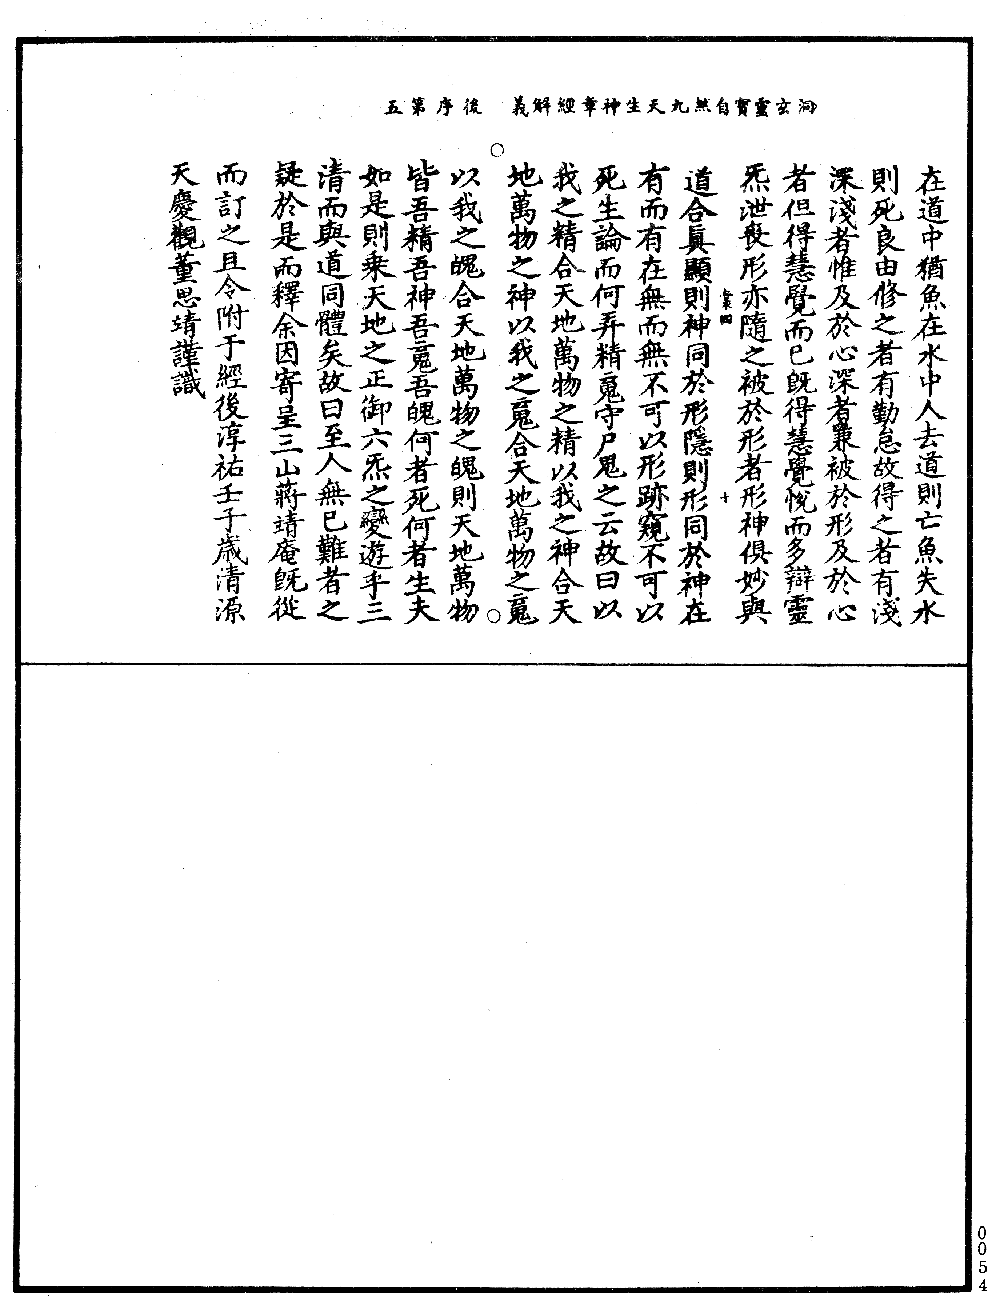 洞玄靈寶自然九天生神章經解義　後序第五
在道中猶魚在水中人去道則亡魚失水
則死良由修之者有勤怠故得之者有淺
深淺者惟及於心深者兼被於形及於心
者但得慧覺而已旣得慧覺悅而多辯靈
炁泄丧形亦隨之被於形者形神俱妙與
道合眞顯則神同於形隱則形同於神在
有而有在無而無不可以形跡窺不可以
死生論而何弄精䰟守尸鬼之云故曰以
我之精合天地萬物之精以我之神合天
地萬物之神以我之䰟合天地萬物之䰟
以我之魄合天地萬物之魄則天地萬物
皆吾精吾神吾䰟吾魄何者死何者生夫
如是則乘天地之正御六炁之變遊乎三
清而與道同體矣故曰至人無已難者之
疑於是而釋余因寄呈三山蔣靖庵旣從
而訂之且令附于經後淳祐壬子歲清源
天慶觀董思靖謹識
0054